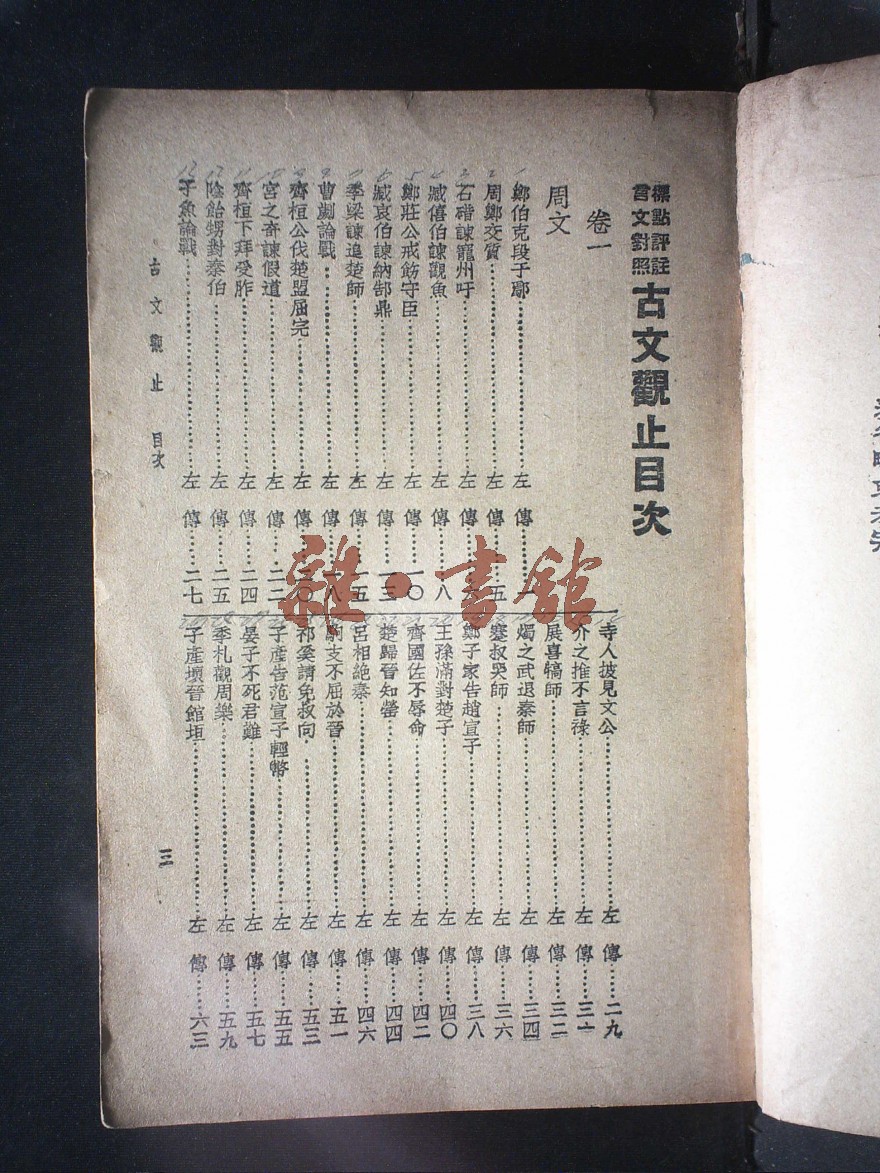 標點評註
言文對照
古文觀止目次
卷一
周文
鄭伯克段于鄢……左傳……一
周鄭交質……左傳……五
石碏諫寵州吁……左傳……六
臧僖伯諫觀魚……左傳……八
鄭莊公戒飭守臣……左傳……一〇
臧哀伯諫納郜鼎……左傳……一三
季梁諫追楚師……左傳……一五
曹劌論戰……左傳……一八
齊桓公伐楚盟屈完……左傳……二〇
宮之奇諫假道……左傳……二二
齊桓下拜受胙……左傳……二四
陰飴甥對秦伯……左傳……二五
子魚論戰……左傳……二七
寺人披見文公……左傳……二九
介之推不言祿……左傳……三一
展喜犒師……左傳……三二
燭之武退秦師……左傳……三四
蹇叔哭師……左傳……三六
鄭子家告趙宣子……左傳……三八
王孫滿對楚子……左傳……四〇
齊國佐不辱命……左傳……四二
楚歸晉知罃……左傳……四四
呂相絶秦……左傳……四六
駒支不屈於晉……左傳……五一
祁奚請免叔向……左傳……五三
子產告范宣子輕幣……左傳……五五
晏子不死君難……左傳……五七
季札觀周樂……左傳……五九
子產壞晉館垣……左傳……六三
古文觀止 目次
三
雜·書館